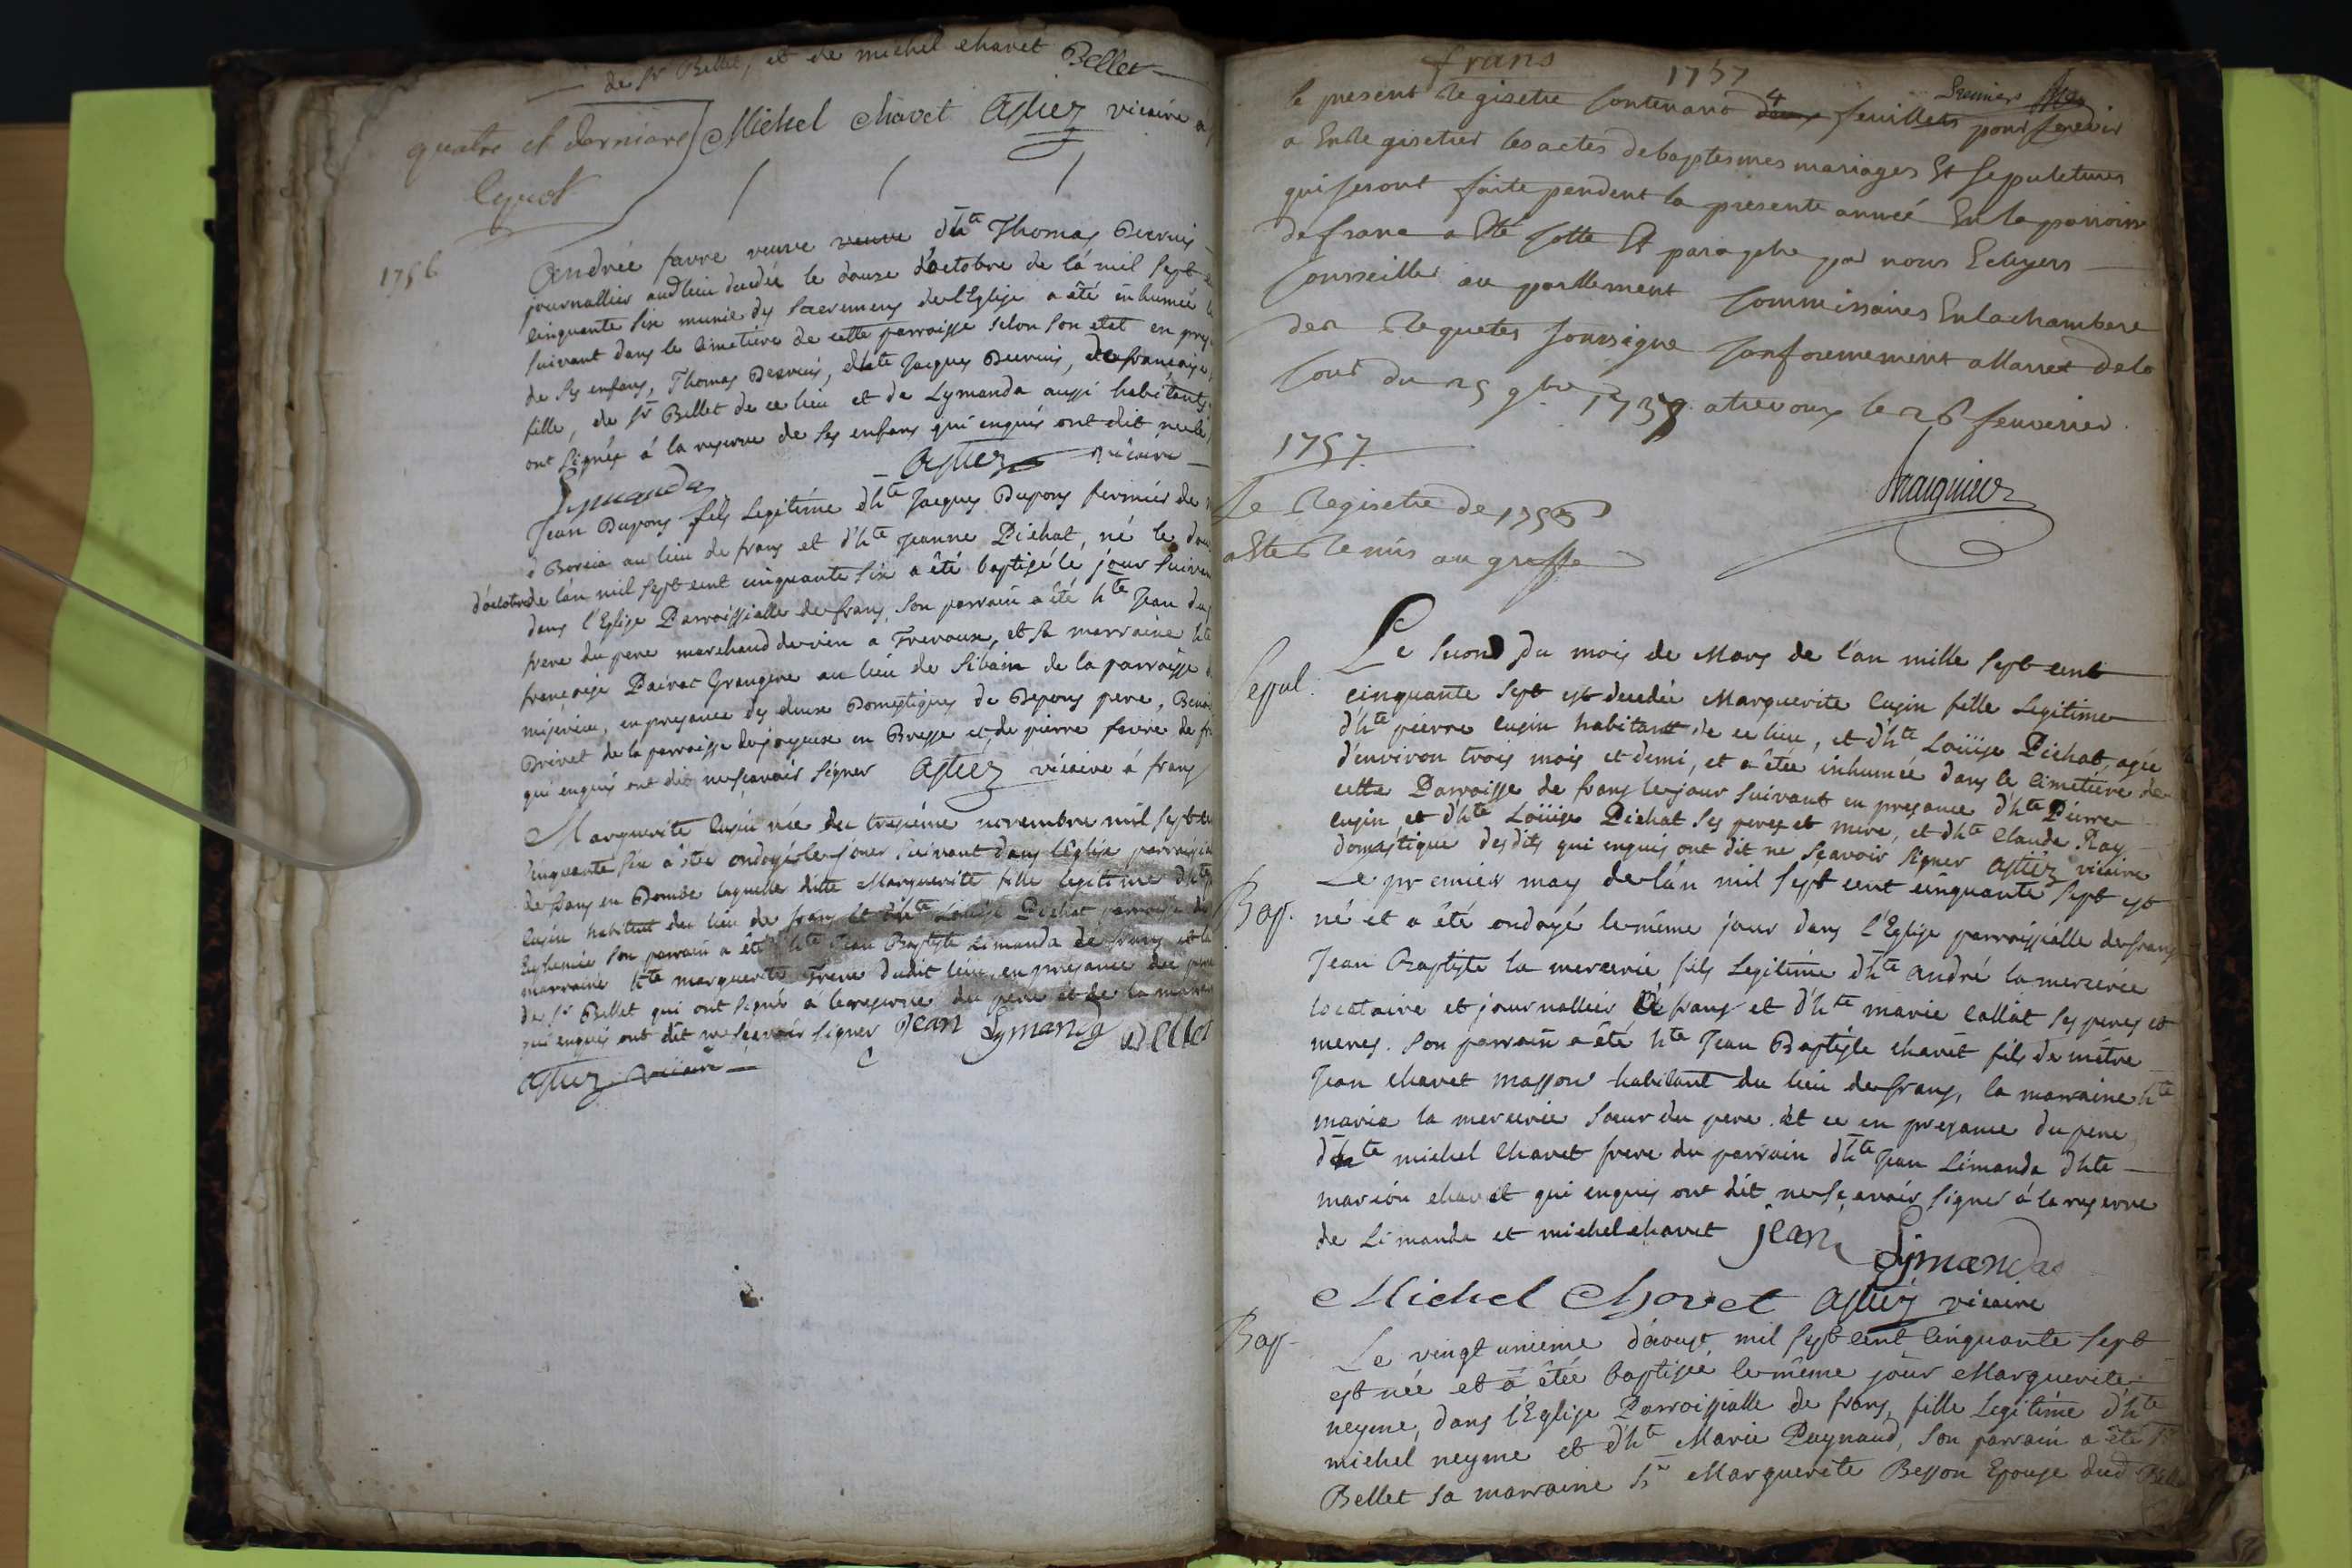 de Sr Bellet, et de michel chavet Bellet
quatre et derniere Michel chavet Astiez vicaire a
1756
Andrée favre veuve veuve dhte Thomas Decruis
journallier audlieu decedée le douze d'octobre de l'a mil sept
cinquante six munie des sacremens de l'Eglise a été inhumée
suivant dans le cimetiere de cette parroisse selon son etat en pres
de ses enfans, Thomas Decruis, dhte Jacques Decruis, de françoise,
fille, de Sr Bellet de ce lieu et de Lymanda aussi habitants
ont signés à la reserve de ses enfans qui enquis ont dit
Lymanda Astiez vicaire
Jean Dupons fils legitime dhte Jacques Dupons fermier de
Boreia au lieu de frans et d'hte Jeanne Pichat, né le
d'octobre de l'an mil sept cent cinquante six a été baptisé le jour suivan
dans l'Eglise Parroissialle de frans, son parrain a été hte Jean du
frere du pere marchand de vin a Trevoux, et sa marraine hte
françoise Grangere au lieu de Sibain de la parroisse
miserieu, en presance des deux Domestiques de Depons pere,
Privet de la parroisse de joyeuse en Bresse et de pierre favre de fr
qui enquis ont dit ne sçavoir signer Astiez vicaire à frans
Marguerite Cusin née du treisieme novembre mil sept ce
cinquante six a stée ondoyé le jour suivant dans l'église
de frans en Dombe laquelle ditte Marguerite fille legitime dhte
Cusin habitent du lieu de frans et d'hte Loüise Pichat
son parrain a été hte Jean Baptiste Limanda de frans et la
marraine hte marguerite Frene dudit lieu, en presance du pere
de Sr Bellet qui ont signé a la reserve du pere et de la marr
qui enquis ont dit ne sçavoir signer Jean Lymanda Bellet
Astiez vicaire
frans 1757
le present Registre Contenant 4 feuillets pour servir
a Enregistrer les actes de baptesmes mariages Et sepultures
qui seront faite pendent la presente anneé En la parroisse
de frans a Eté Cotte Et paraphe par nous Ecuyers
Conseiller au parllement Commissaires En la chambere
des Requetes soussigne Conformement a l'arret de la
Cour du 25 9bre a trevoux le 26 feuverier
1757
Le Registre de
a Eté Remis au greffe
Sepul.
Le second du mois de Mars de l'an mille sept cent
cinquante sept est decedée Marguerite Cusin fille legitime
d'hte pierre Cusin habitant de ce lieu, et d'hte Loüise Pichat, agée
d'environ trois mois et demi, et a étée inhumée dans le cimetiere de
cette Parroisse de frans le jour suivant en presance d'hte Pierre
Cusin et d'hte Loüise Pichat ses peres et mere, et dhte Claude Ray
domestique desdits qui enquis ont dit ne sçavoir signer Astiez vicaire
Bap.
Le premier may de l'an mil sept cent cinquante sept est
né et a été ondoyé le même jour dans l'Eglise parroissialle de frans
Jean Baptiste la mercerie fils legitime dhte André la mercerie
locataire et journallier de frans et d'hte marie Callat ses peres et
meres. son parrain a été hte Jean Baptiste chavet fils de mêtre
Jean chavet masson habitant du lieu de frans, la marraine hte
maria la mercerie sœur du pere. et ce en presance du pere
dhte michel Chavet frere du parrain dhte Jean Limanda dhte
marion chavet qui enquis ont dit ne sçavoir signer à la reserve
de Limanda et michel chavet jean Lymanda
Michel Chovet Astiez vicaire
Bap.
Le vingt unieme d'aoust mil sept cent cinquante sept
est née et a étée baptisée le même jour Marguerite
neyme, dans l'Eglise Parroissialle de frans, fille Legitime d'hte
michel neyme et d'hte Marie Paynaud, son parrain a été Sr
Bellet sa marraine Marguerite Besson Epouse dud